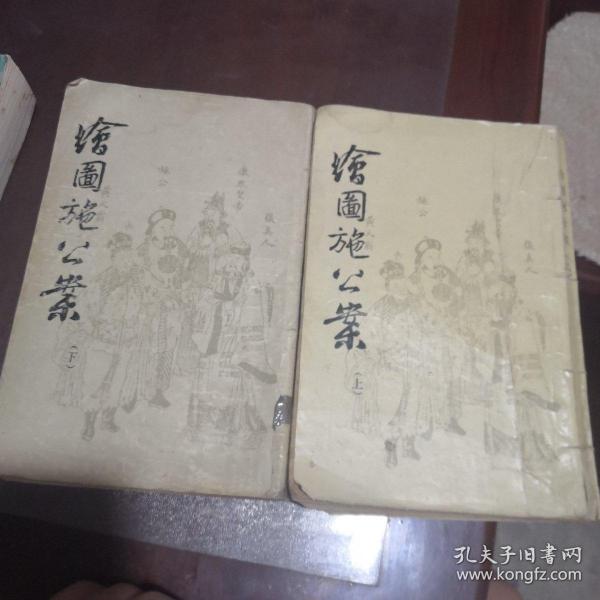 繪圖施公案
（下）
施公
張美人
繪圖施公案
（上）
施公
孔夫子旧书网
www.kongfz.com